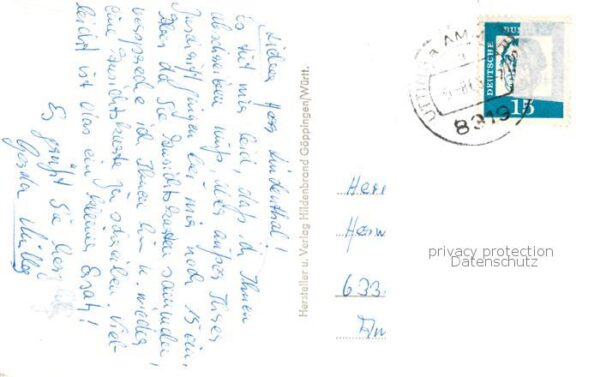 Lieber Herr Lindenthal!
Es tut mir leid, daß ich Ihnen
abschreiben muß, aber außer Ihrer
Zuschrift gingen bei mir noch 15 ein.
Aber da Sie Ansichtskarten sammeln,
verspreche ich Ihnen hin u. wieder
eine Ansichtskarte zu schreiben. Viel-
leicht ist das ein kleiner Ersatz!
Es grüßt Sie
Gerda Müller
Hersteller u. Verlag Hildenbrand Göppingen/Württ.
AM
8919
DEUTSCHE BUN
15
Herr
633
privacy protection
Datenschutz